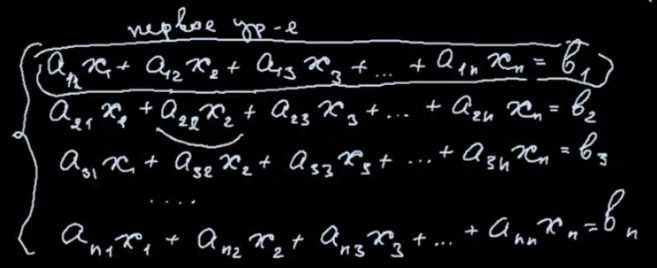 первое ур-е
a₁₁x₁ + a₁₂x₂ + a₁₃x₃ + ... + a₁ₙxₙ = b₁
a₂₁x₁ + a₂₂x₂ + a₂₃x₃ + ... + a₂ₙxₙ = b₂
a₃₁x₁ + a₃₂x₂ + a₃₃x₃ + ... + a₃ₙxₙ = b₃
....
aₙ₁x₁ + aₙ₂x₂ + aₙ₃x₃ + ... + aₙₙxₙ = bₙ